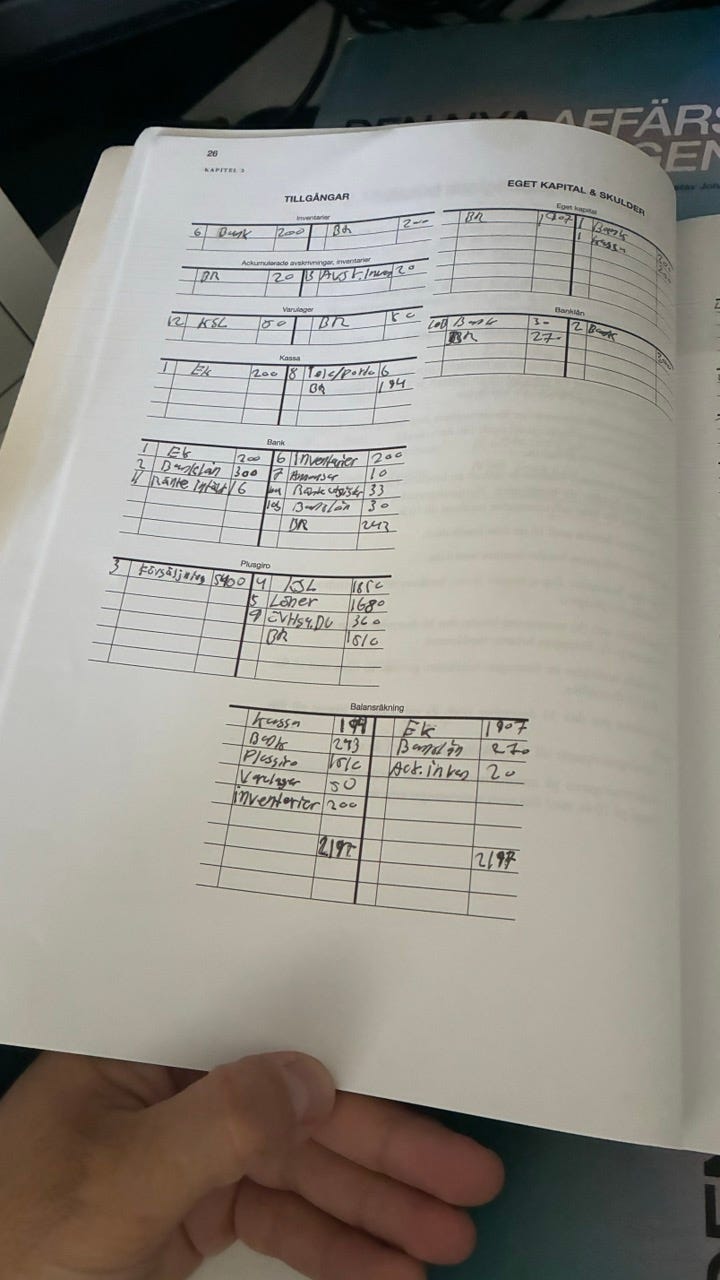 DEN NYA AFFÄRS
GEN
26
KAPITEL 3
TILLGÅNGAR
EGET KAPITAL & SKULDER
Inventarier
6 Bank 200 BR 200
Ackumulerade avskrivningar, inventarier
BR 20 13 Avskr. Inven 20
Varulager
12 KSL 50 BR 50
Kassa
1 Ek 200 8 Tele/porto 6
BR 194
Bank
1 Ek 200 6 Inventarier 200
2 Banklån 300 7 Annonser 10
11 Ränte intäkt 16 Ränteutgifter 33
10b Banklån 30
BR 243
Plusgiro
3 Försäljning 5400 4 KSL 1850
5 Löner 1680
9 360
BR 1510
Eget kapital
BR 1907 1 Bank 200
1 Kassa 200
Banklån
10b Bank 30 2 Bank 300
BR 270
Balansräkning
Kassa 194 Ek 1907
Bank 243 Banklån 270
Plusgiro 1510 Ack. inven 20
Varulager 50
inventarier 200
2197 2197